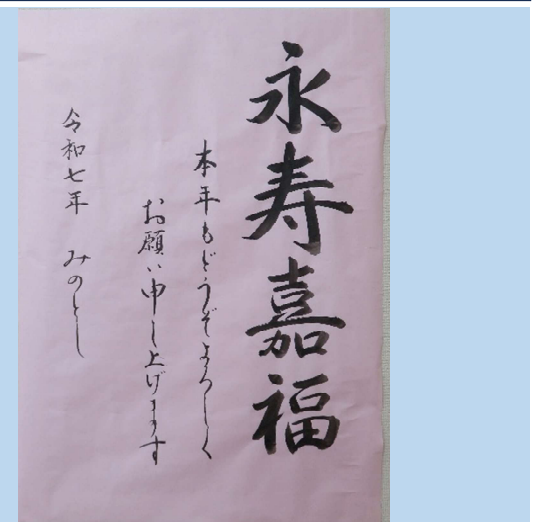 永寿嘉福
本年もどうぞよろしく
お願い申し上げます
令和七年 みのとし